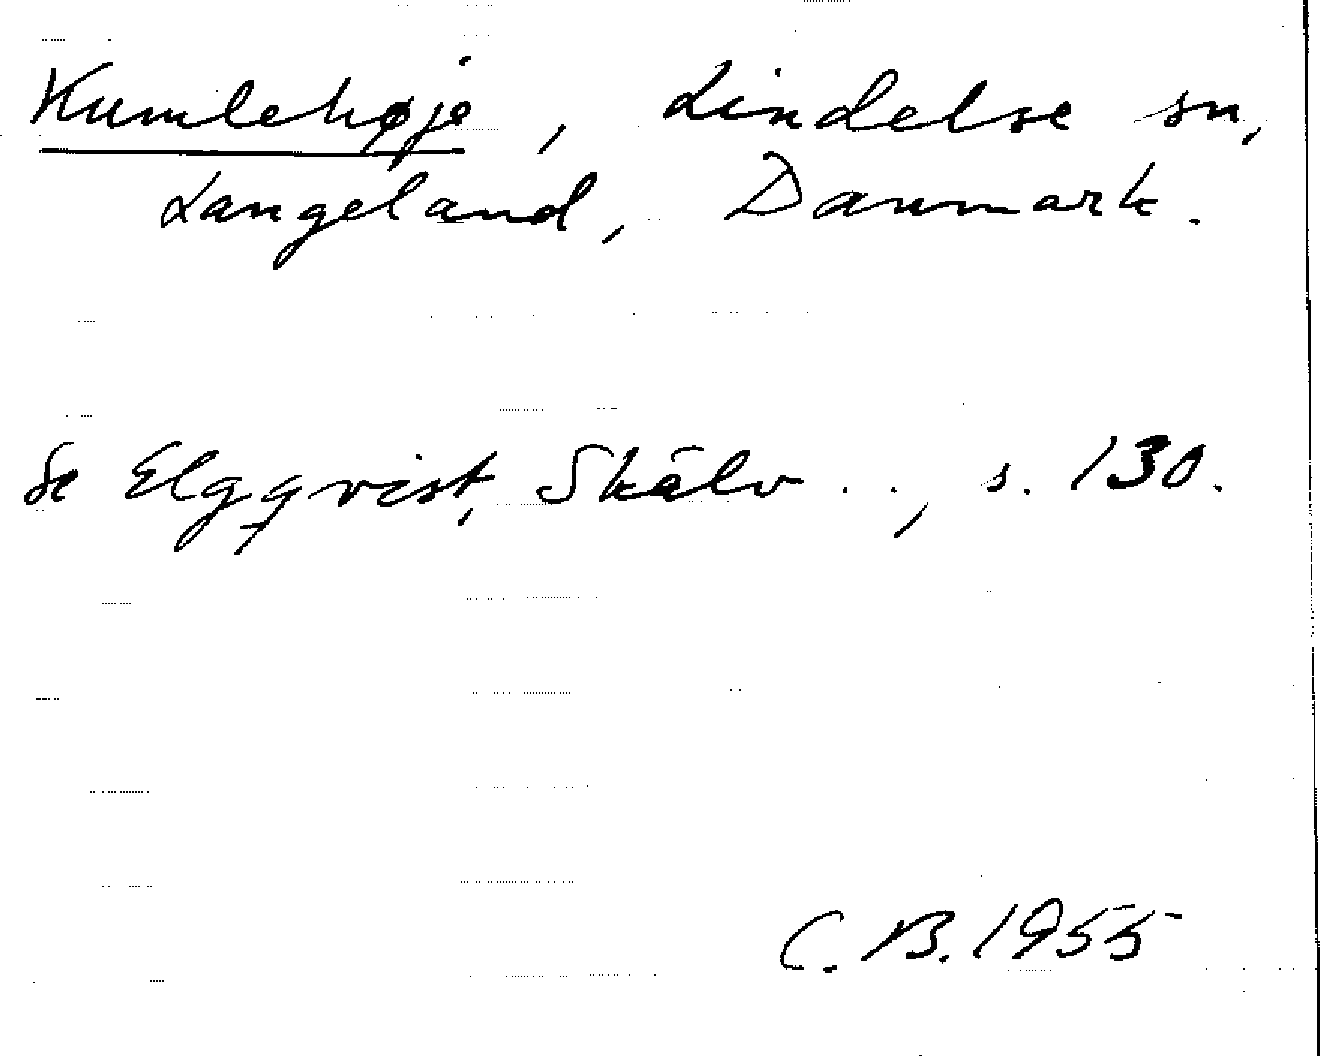 Kumlehøje, Lindelse sn,
Langeland, Danmark.
Se Elgqvist, Skälv . . , s. 130.
C. B. 1955